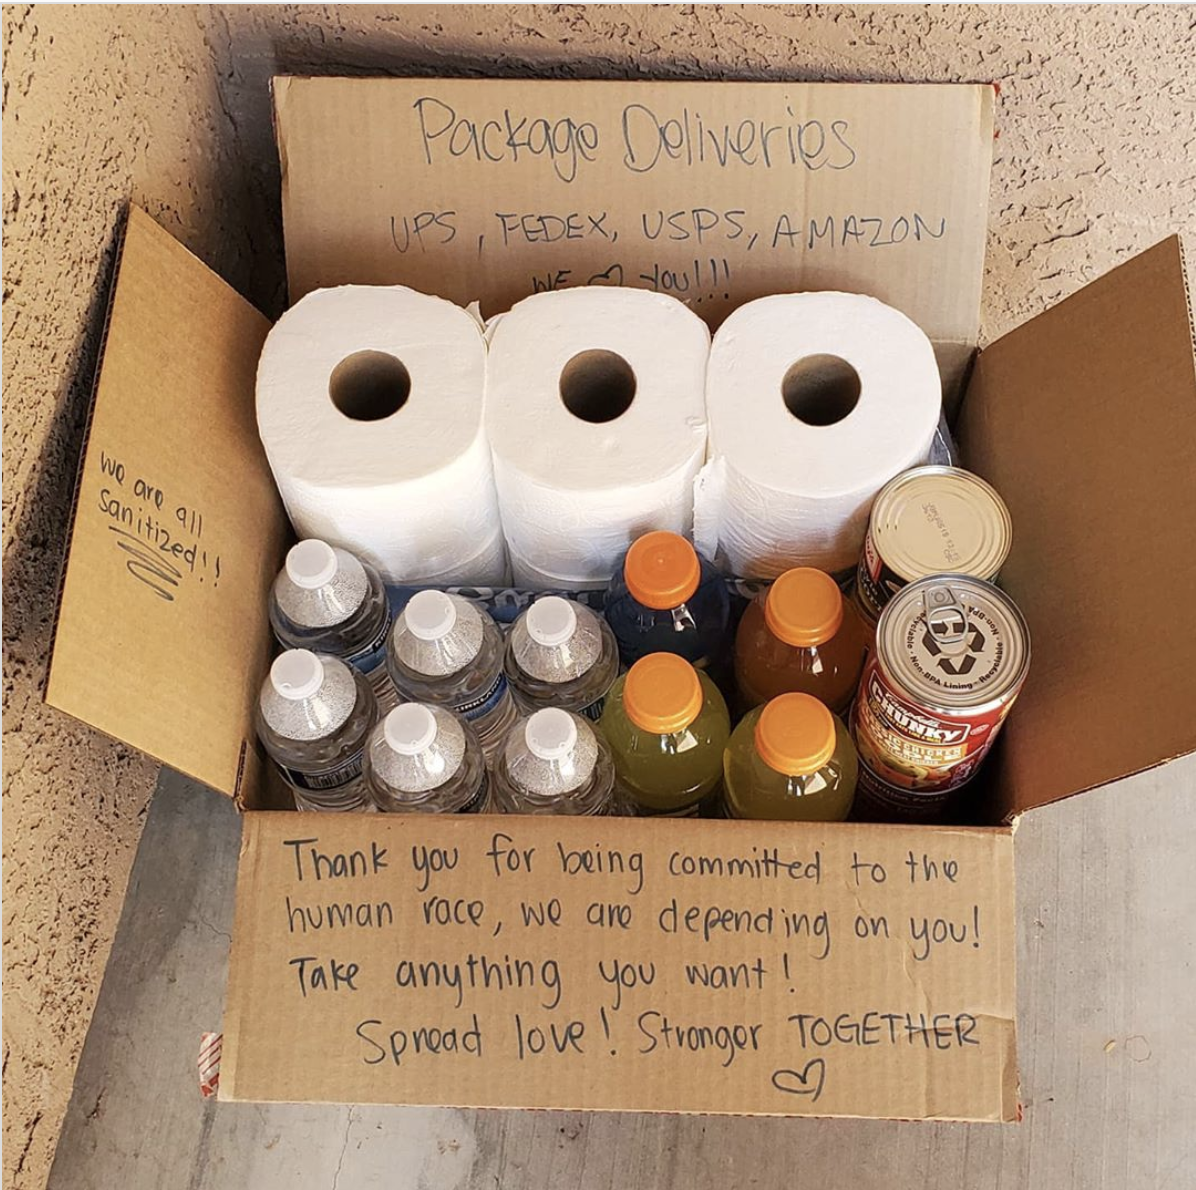 Package Deliveries
UPS, FEDEX, USPS, AMAZON
WE ♡ YOU!!!
we are all
sanitized!!
KIRKLAND
Recyclable · Non-BPA Lining · Recyclable · Non-BPA
Campbell's
CHUNKY
CLASSIC CHICKEN
Nutrition Facts
Thank you for being committed to the
human race, we are depending on you!
Take anything you want!
Spread love! Stronger TOGETHER
♡